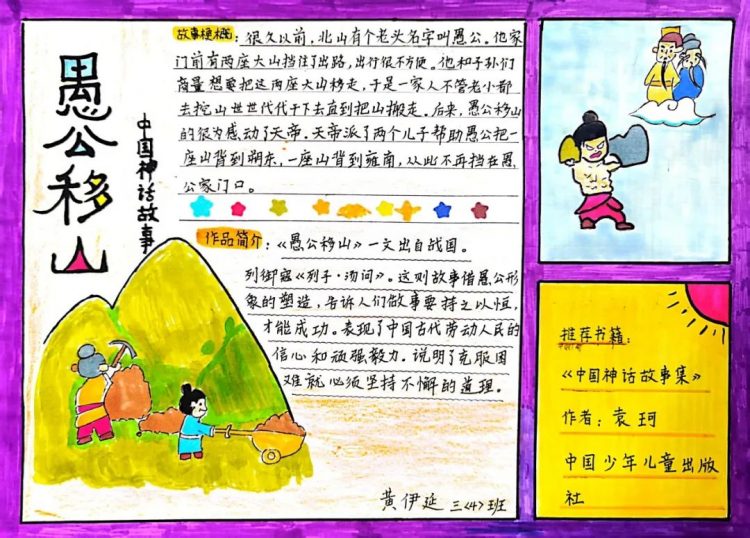 愚公移山
中国神话故事
故事梗概：很久以前，北山有个老头名字叫愚公。他家
门前有两座大山挡住了出路，出行很不方便。他和子孙们
商量想要把这两座大山移走，于是一家人不管老小都
去挖山世世代代干下去直到把山搬走。后来，愚公移山
的行为感动了天帝。天帝派了两个儿子帮助愚公把一
座山背到朔东，一座山背到雍南，从此不再挡在愚
公家门口。
作品简介：《愚公移山》一文出自战国。
列御寇《列子·汤问》。这则故事借愚公形
象的塑造，告诉人们做事要持之以恒，
才能成功。表现了中国古代劳动人民的
信心和顽强毅力。说明了克服困
难就必须坚持不懈的道理。
黄伊延 三〈4〉班
推荐书籍：
《中国神话故事集》
作者：袁珂
中国少年儿童出版
社